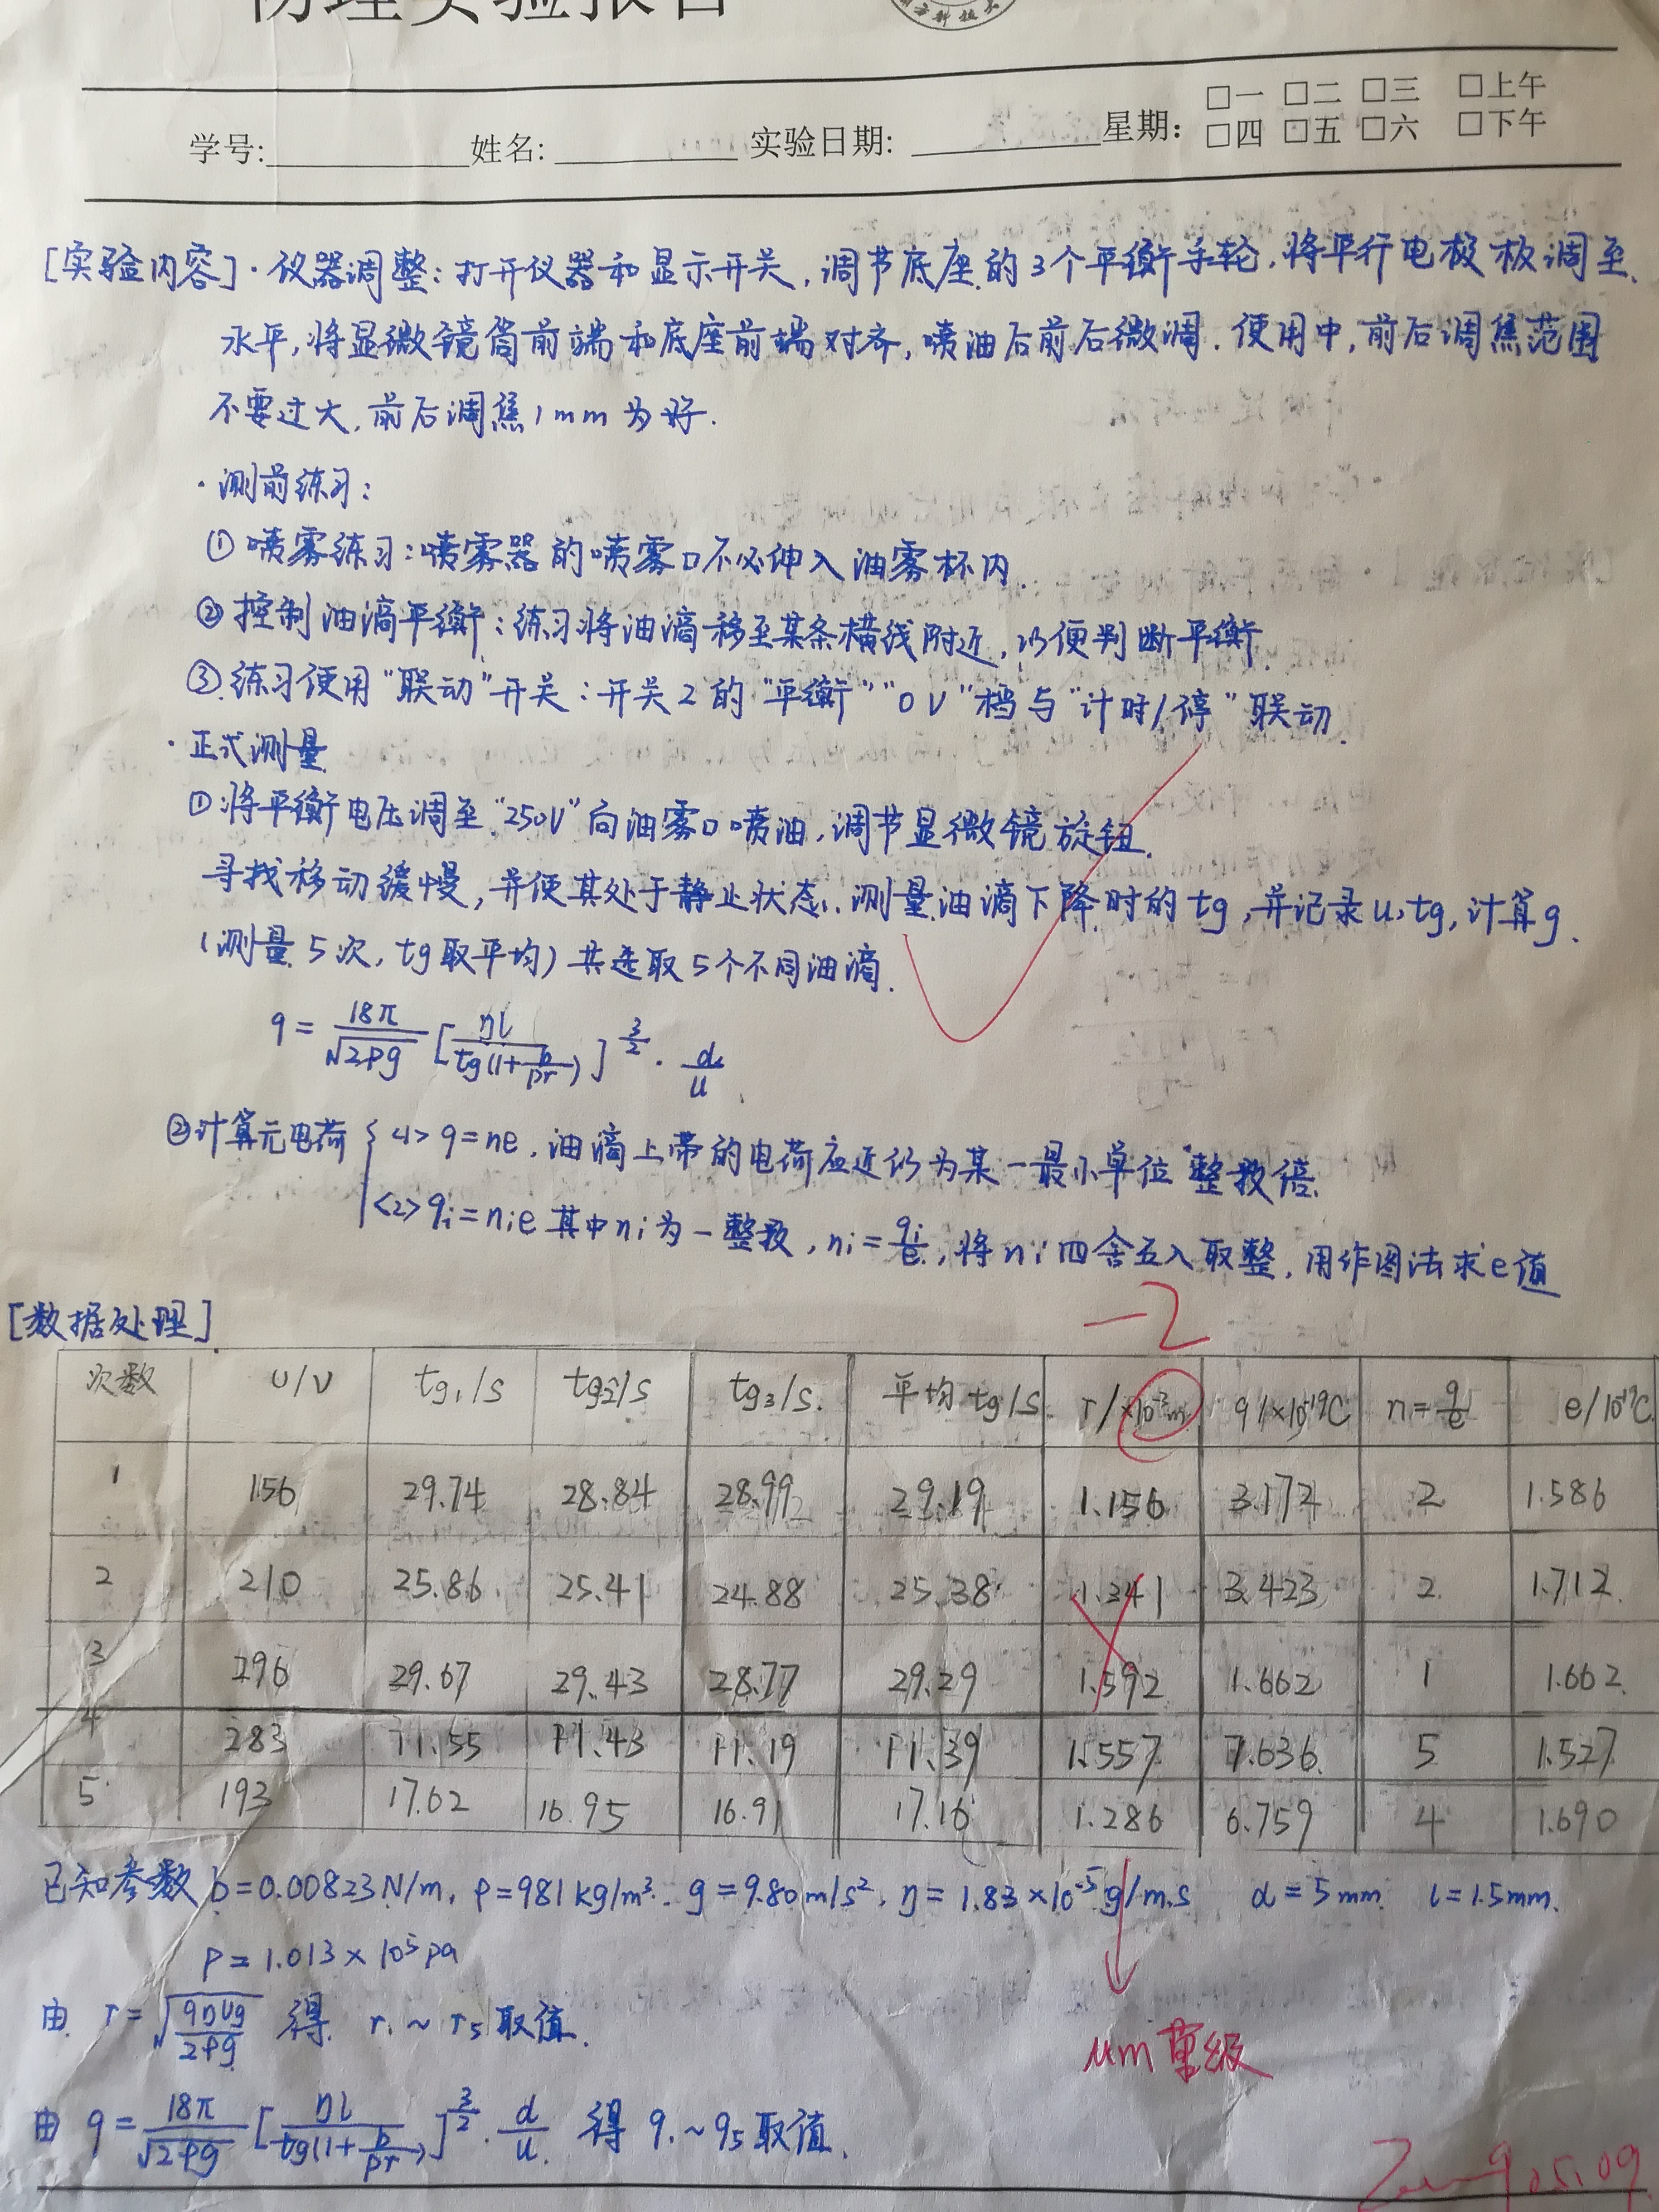 物理实验报告
学号: 姓名: 实验日期: 星期: □一 □二 □三 □上午
□四 □五 □六 □下午
[实验内容]·仪器调整:打开仪器和显示开关,调节底座的3个平衡手轮,将平行电极板调至
水平,将显微镜筒前端和底座前端对齐,喷油后前后微调.使用中,前后调焦范围
不要过大,前后调焦1mm为好.
·测前练习:
①喷雾练习:喷雾器的喷雾口不必伸入油雾杯内.
②控制油滴平衡:练习将油滴移至某条横线附近,以便判断平衡.
③练习使用"联动"开关:开关2的"平衡""0V"档与"计时/停"联动.
·正式测量
①将平衡电压调至"250V"向油雾口喷油,调节显微镜旋钮.
寻找移动缓慢,并使其处于静止状态.测量油滴下降时的tg,并记录u,tg,计算q.
(测量5次,tg取平均)共选取5个不同油滴.
q=18π/√2ρg [ηl/tg(1+b/pr)]^3/2 · d/u
②计算元电荷 { <1> q=ne,油滴上带的电荷应近仍为某一最小单位整数倍.
<2> qi=nie 其中ni为一整数,ni=qi/e,将ni四舍五入取整,用作图法求e值
-2
[数据处理]
次数 U/V tg1/s tg2/s tg3/s 平均tg/s r/×10⁻³m q/×10⁻¹⁹C n=q/e e/10⁻¹⁹C
1 156 29.74 28.84 28.99 29.19 1.156 3.172 2 1.586
2 210 25.86 25.41 24.88 25.38 1.341 3.423 2 1.712
3 296 29.67 29.43 28.77 29.29 1.592 1.662 1 1.662
4 283 11.55 11.43 11.19 11.39 1.557 7.636 5 1.527
5 193 17.62 16.95 16.91 17.16 1.286 6.759 4 1.690
已知参数 b=0.00823N/m, ρ=981kg/m³. g=9.80m/s², η=1.83×10⁻⁵g/m.s d=5mm l=1.5mm.
P=1.013×10⁵pa
由 r=√(9ηVg/2ρg) 得 r1~r5取值.
μm量级
由 q=18π/√2ρg [ηl/tg(1+b/pr)]^3/2 · d/u 得 q1~q5取值.
05.09